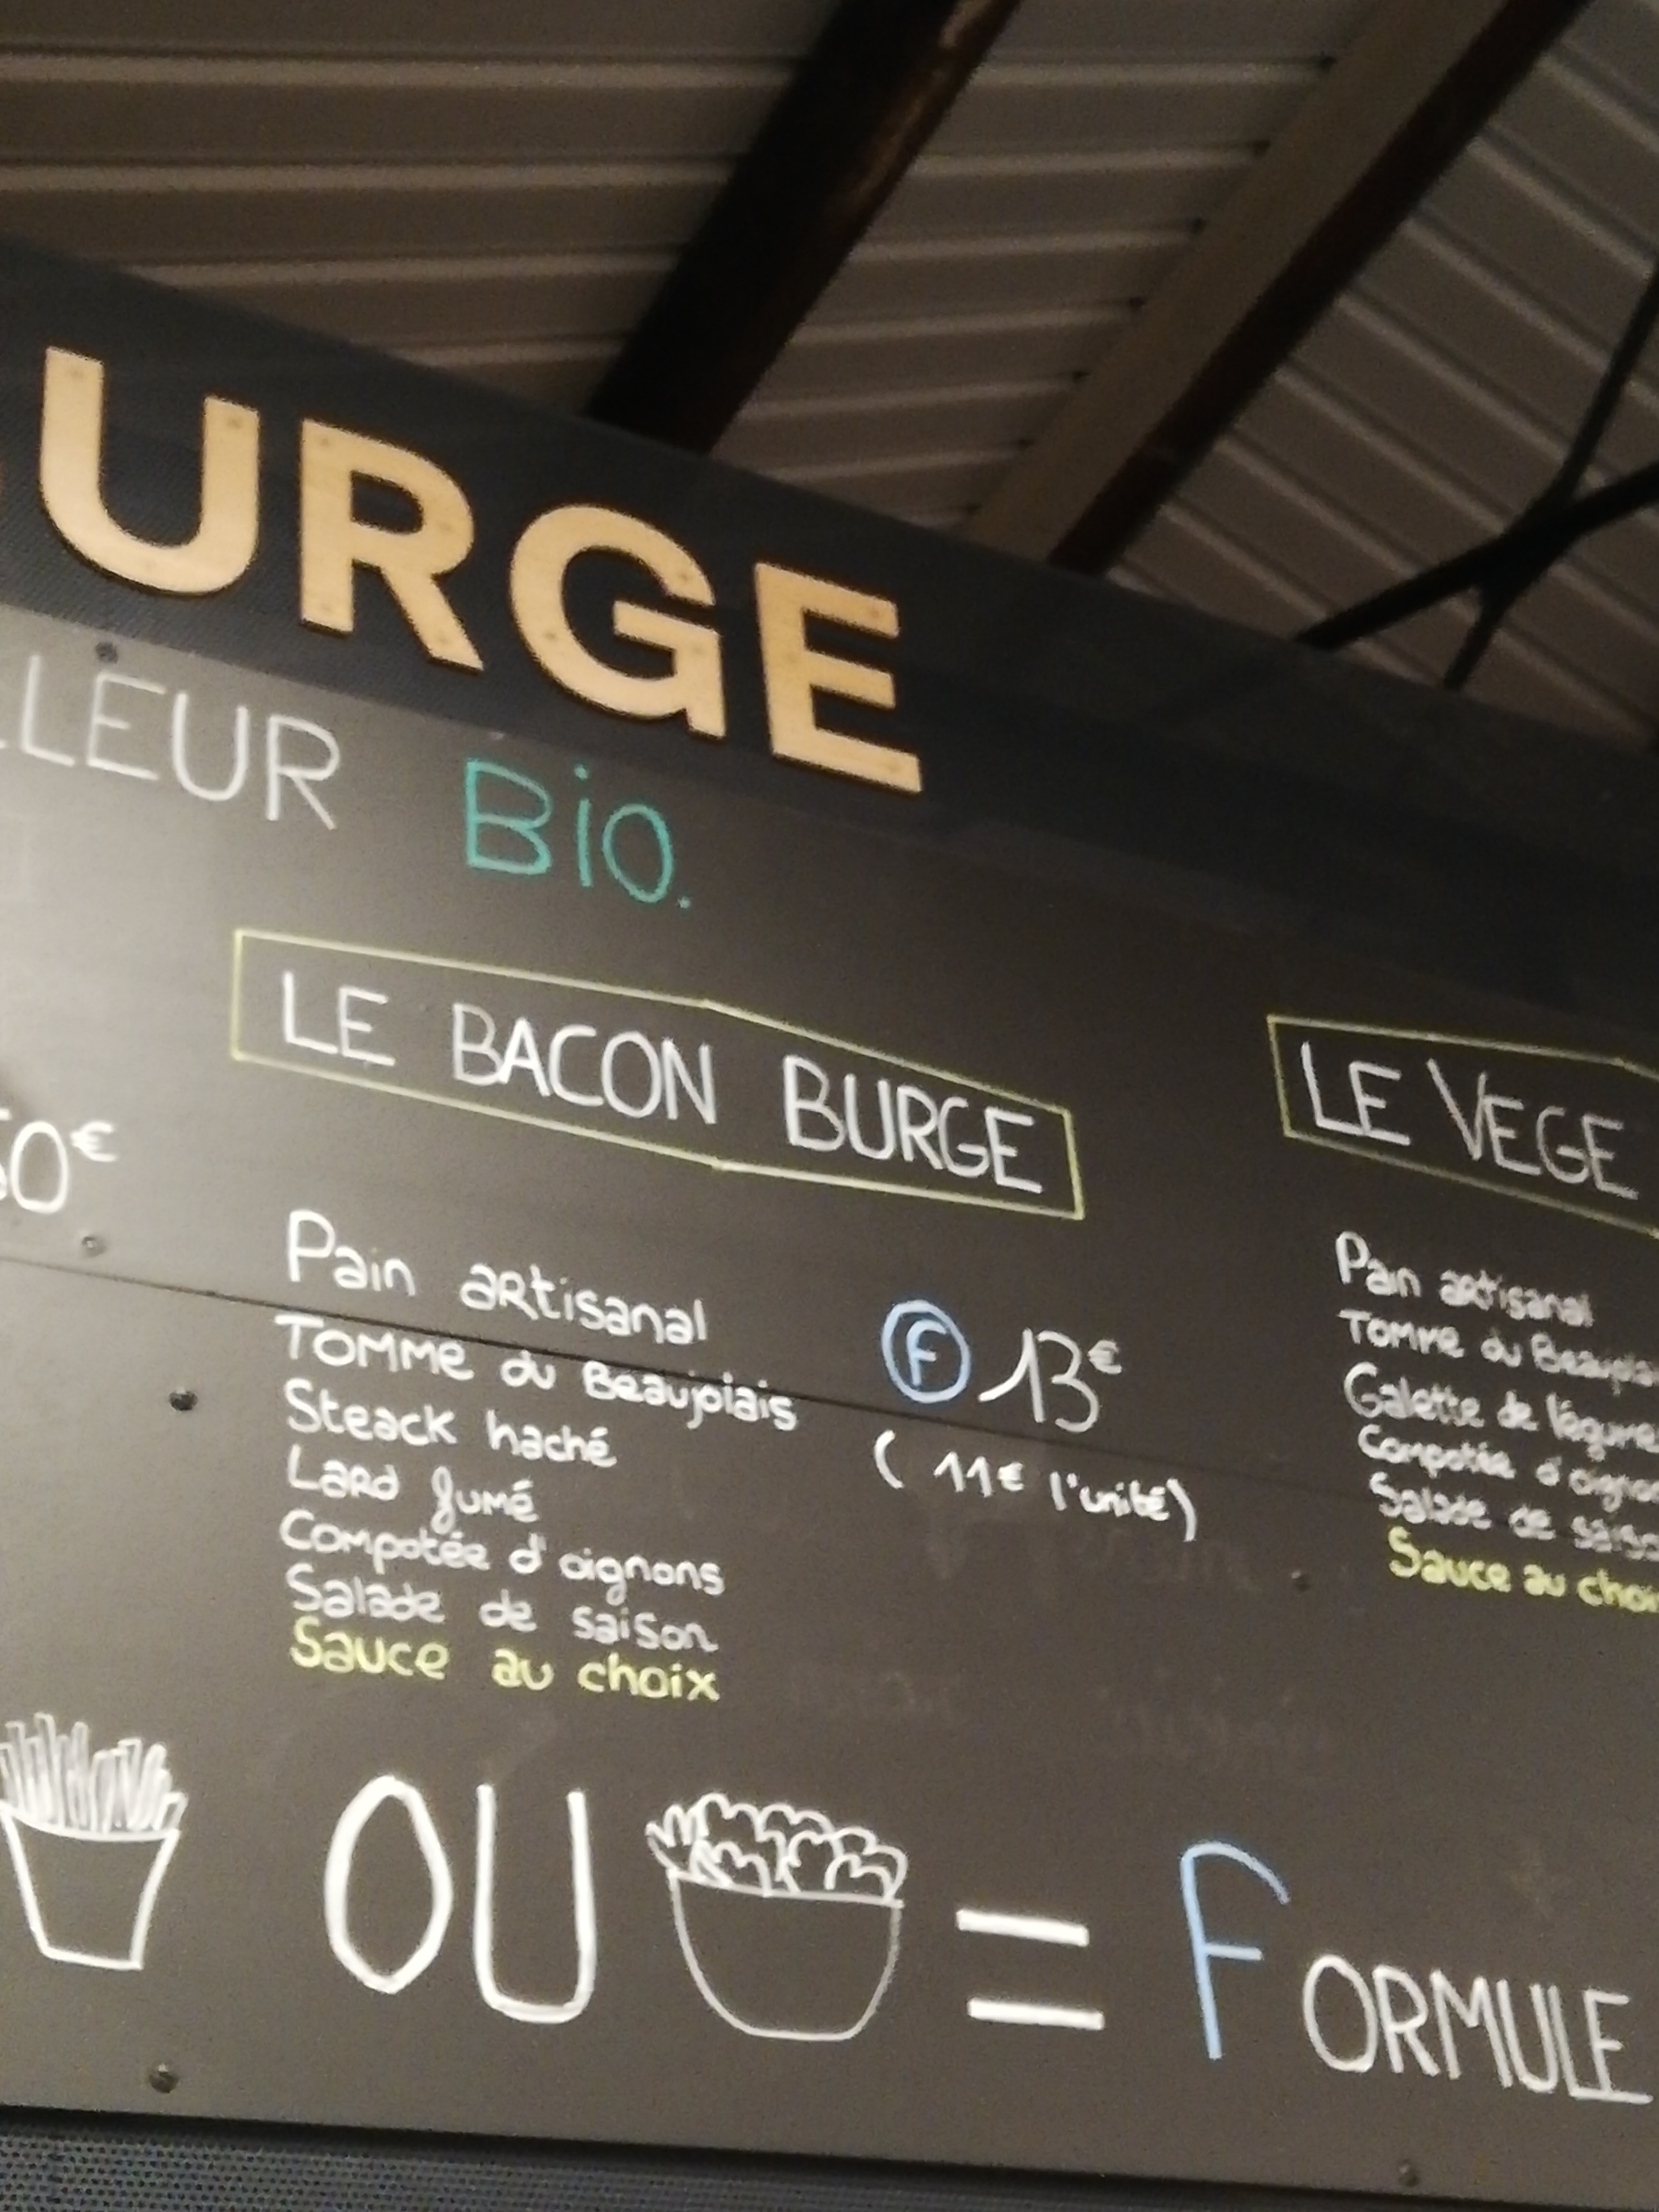 BURGE
LLEUR BiO.
50€
LE BACON BURGE
Pain artisanal
Tomme du Beaujolais
Steack haché
Lard fumé
Compotée d'oignons
Salade de saison
Sauce au choix
F 13€
(11€ l'unité)
LE VEGE
Pain artisanal
Tomme du Beaujolais
Galette de légume
Compotée d'oignon
Salade de saiso
Sauce au choi
OU = FORMULE